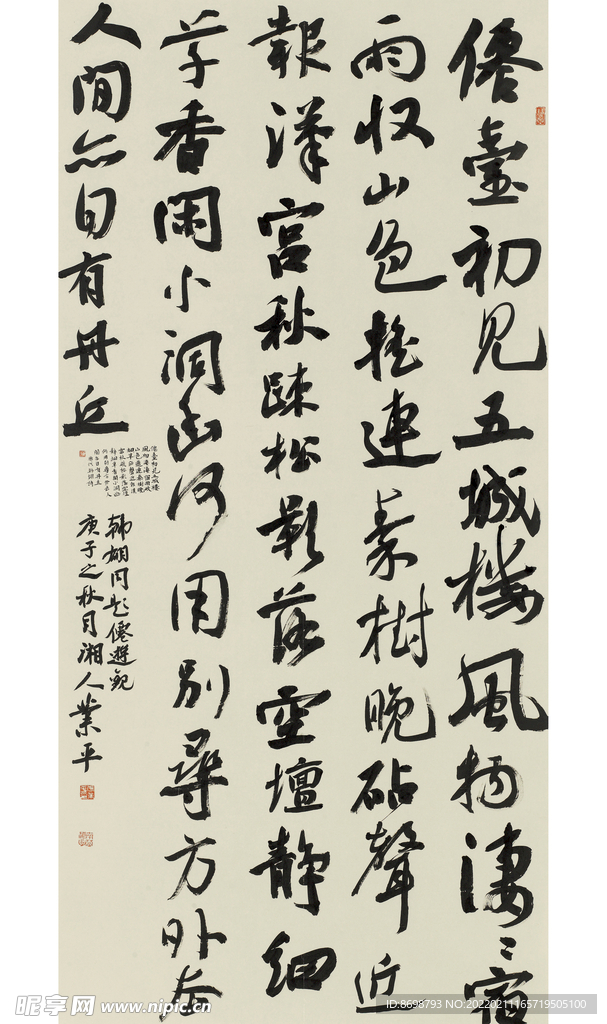 僊臺初見五城樓風物淒〻宿
雨收山色遙連秦樹晚砧聲近
報漢宮秋疎松影落空壇靜細
草香閑小洞幽何用別尋方外去
人間亦自有丹丘
韩翃同題僊遊觀
庚子之秋月湘人業平
昵享网 www.nipic.cn
ID:8698793 NO:20220211165719505100